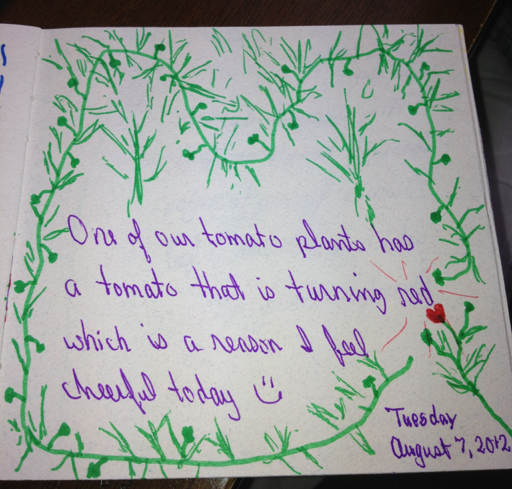 One of our tomato plants has
a tomato that is turning red
which is a reason I feel
cheerful today
Tuesday
August 7, 2012